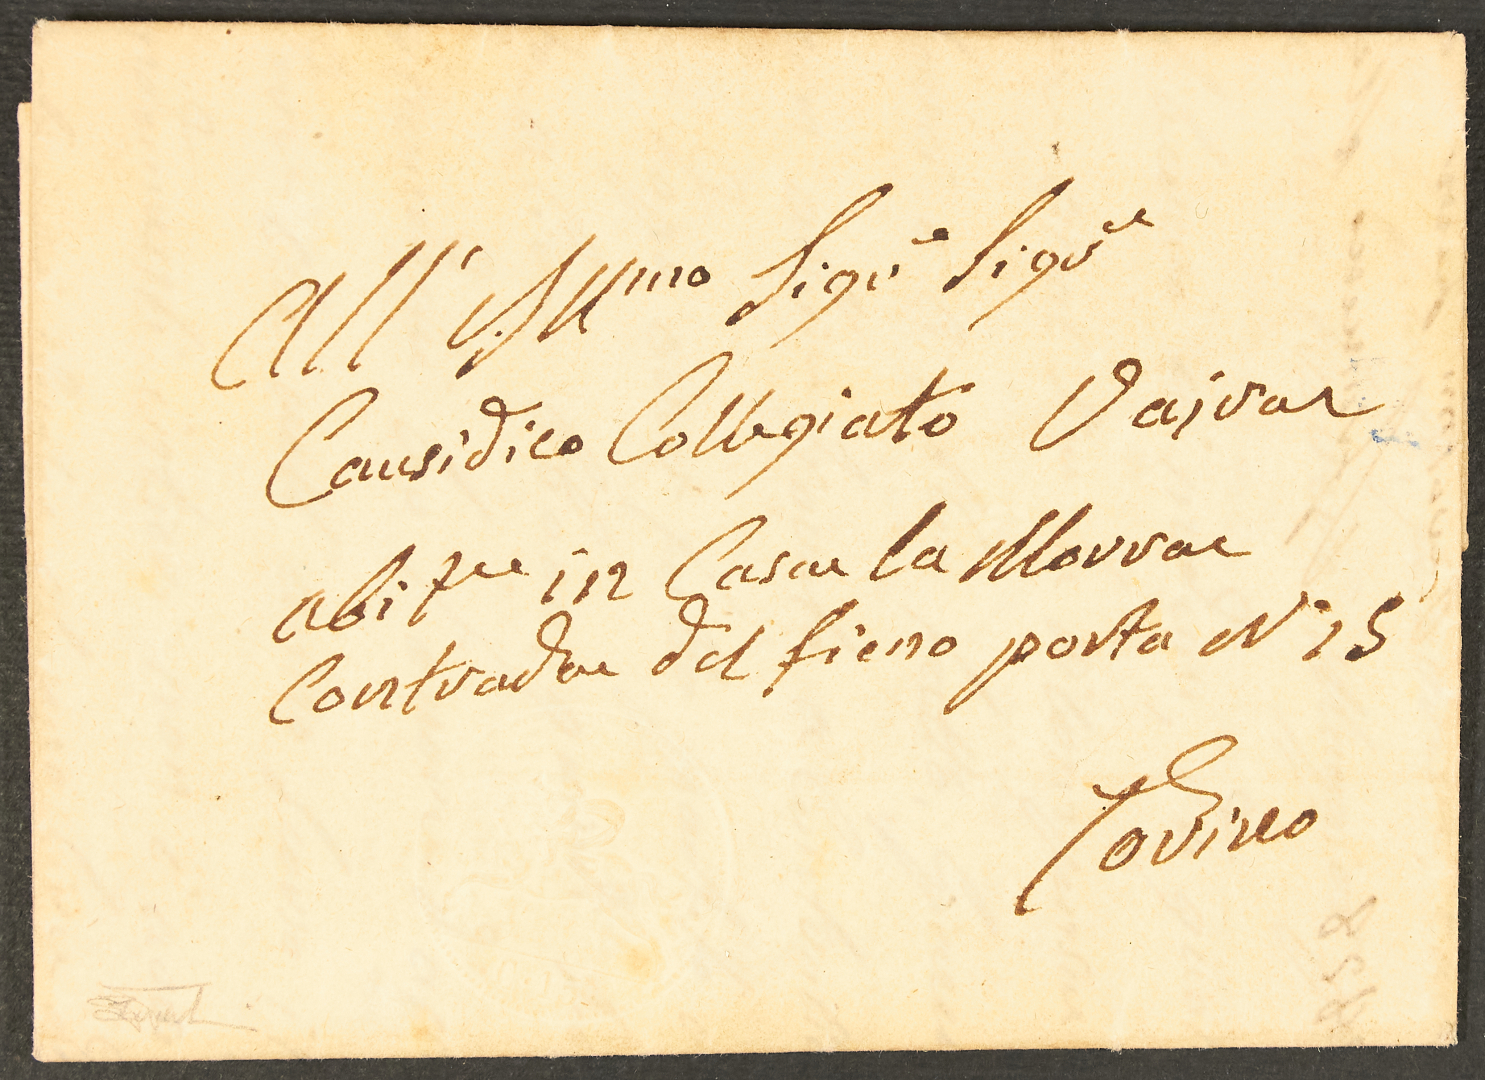 All' Ill.mo Sigr.e Sigr.e
Causidico Collegiato Vajra
abi.te in Casa la Morra
Contrada del fieno porta N° 15
Torino